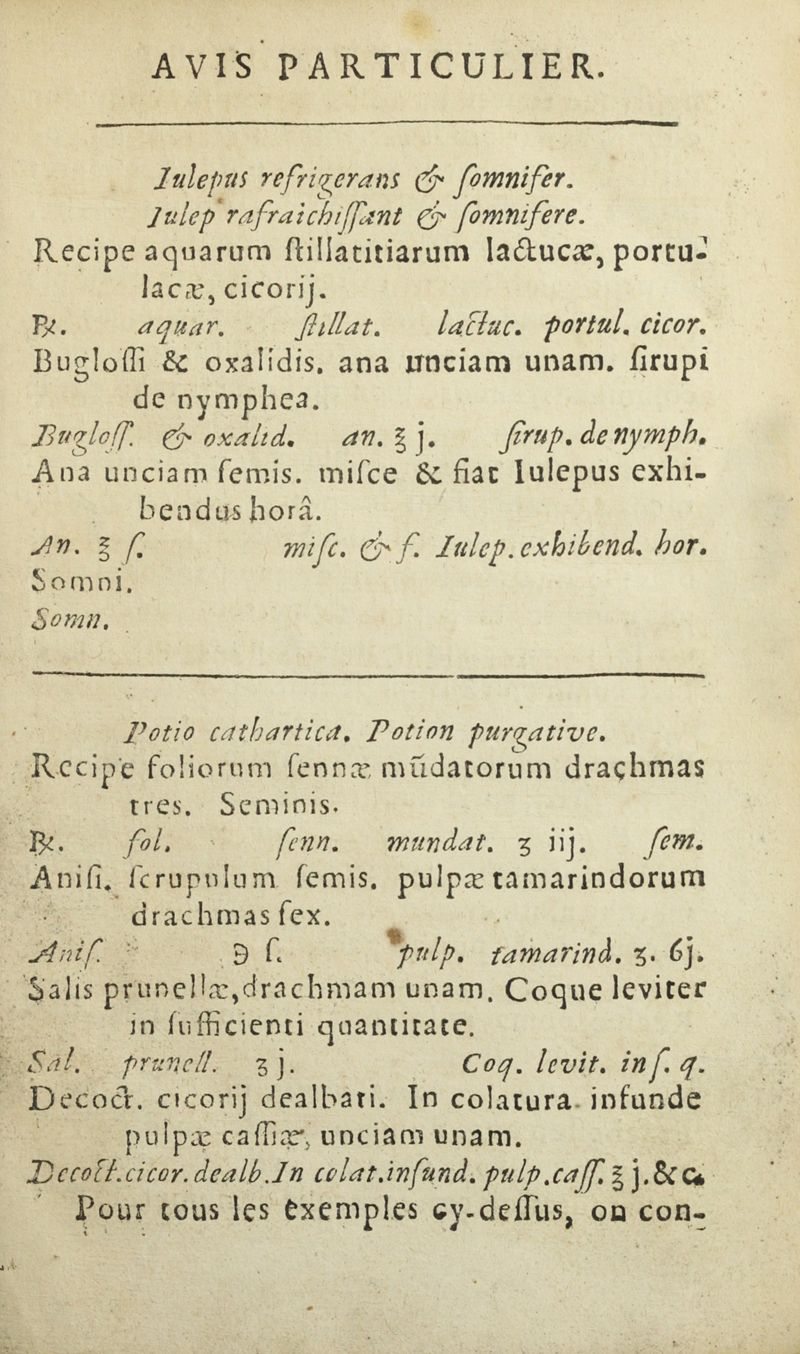 AVIS PARTICULIER.
Iulepus refrigerans & ſomnifer.
Iulep rafraichiſſant & ſomnifere.
Recipe aquarum ſtillatitiarum lactucæ, portu-
lacæ, cicorij.
℞. aquar. ſtillat. lactuc. portul. cicor.
Bugloſſi & oxalidis. ana unciam unam. ſirupi
de nymphea.
Bugloſſ. & oxalid. an. ℥ j. ſirup. de nymph.
Ana unciam ſemis. miſce & fiat Iulepus exhi-
bendus horâ.
An. ℥ ſ. miſc. & f. Iulep. exhibend. hor.
Somni.
Somn.
Potio cathartica. Potion purgative.
Recipe foliorum ſennæ mũdatorum drachmas
tres. Seminis.
℞. fol. ſenn. mundat. ʒ iij. ſem.
Aniſi. ſcrupulum ſemis. pulpæ tamarindorum
drachmas ſex.
Aniſ. ℈ ſ. pulp. tamarind. ʒ. 6j.
Salis prunellæ, drachmam unam. Coque leviter
in ſufficienti quantitate.
Sal. prunell. ʒ j. Coq. levit. in ſ. q.
Decoct. cicorij dealbati. In colatura infunde
pulpæ caſſiæ, unciam unam.
Decoct. cicor. dealb. In colat. infund. pulp. caſſ. ℥ j. &c.
Pour tous les exemples cy-deſſus, on con-